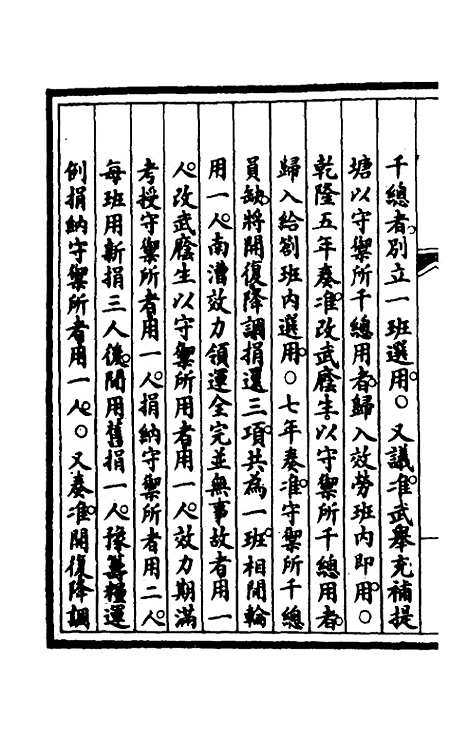 千總者別立一班選用○又議准武舉充補提
塘以守禦所千總用者歸入效勞班內即用○
乾隆五年奏准改武廕生以守禦所千總用者
歸入給劄班內選用○七年奏准守禦所千總
員缺將開復降調捐還三項共為一班相間輪
用一人南漕效力領運全完並無事故者用一
人改武廕生以守禦所用者用一人效力期滿
考授守禦所者用一人捐納守禦所者用二人
每班用新捐三人後間用舊捐一人豫籌糧運
例捐納守禦所者用一人○又奏准開復降調